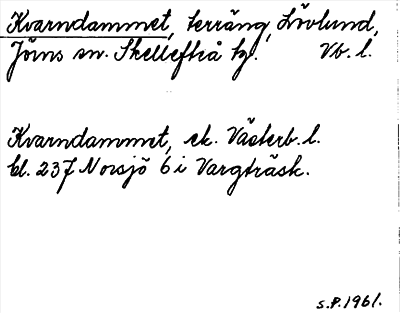 Kvarndammet, terräng, Lövlund,
Jörns sn. Skellefteå tg. Vb. l.
Kvarndammet, ek. Västerb. l.
bl. 237 Norsjö 6 i Vargträsk.
S.P. 1961.